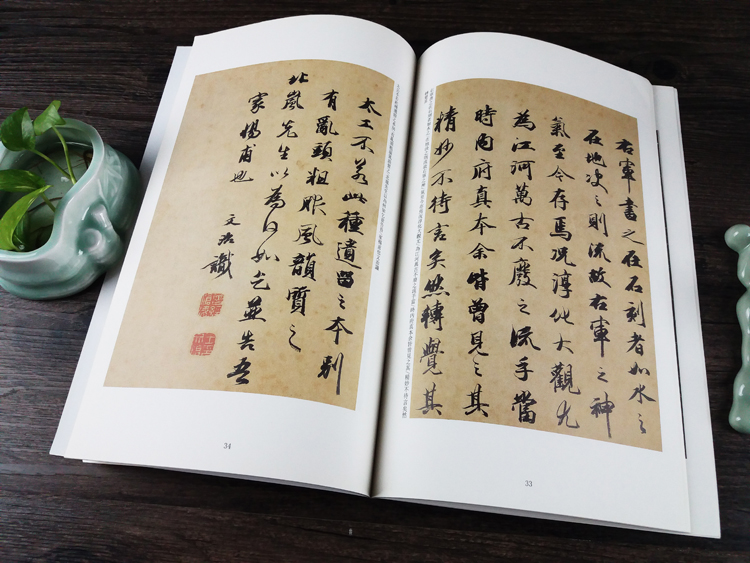 右軍書之在石刻者如水之
在地決之則流故右軍之神
氣至今存焉況淳化大觀尤
為江河萬古不廢之流乎當
時內府真本余皆曾見之其
精妙不待言矣然轉覺其
33
太工不若此種遺留之本別
有亂頭粗服風韻質之
北嵐先生以為何如也並告吾
家惕甫也
文治識
34